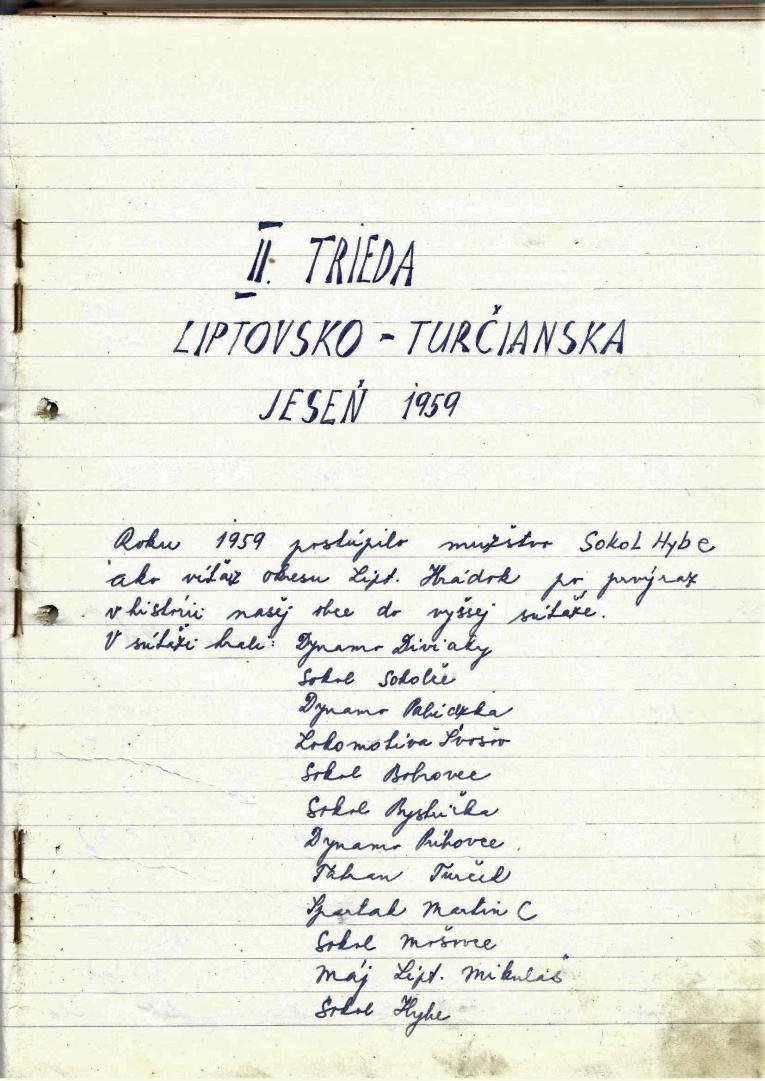 II. TRIEDA
LIPTOVSKO - TURČIANSKA
JESEŇ 1959
Roku 1959 postúpilo mužstvo Sokol Hybe
ako víťaz okresu Lipt. Hrádok po prvý raz
v histórii našej obce do vyššej súťaže.
V súťaži hrali: Dynamo Diviaky
Sokol Sokolče
Dynamo
Lokomotiva Švošov
Sokol Bobrovec
Sokol Bystrička
Dynamo Príbovce
Tatran Turček
Spartak Martin C
Sokol Mošovce
Máj Lipt. Mikuláš
Sokol Hybe